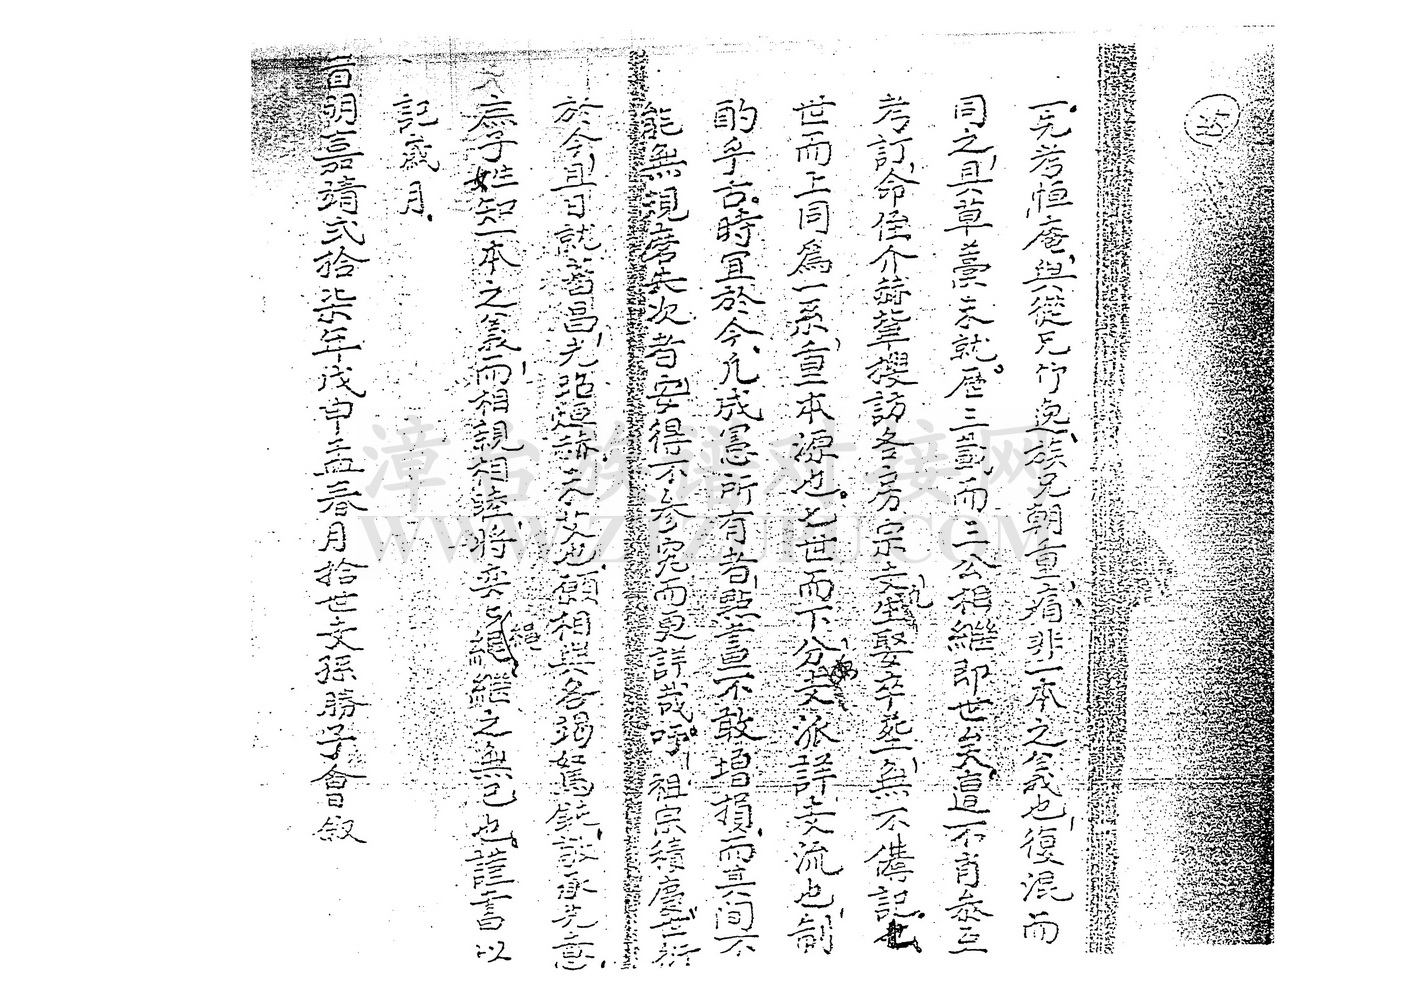 一先考恒庵與從兄竹逸族兄朝重痛非一本之義也復混而
同之具草藁未就歷三載而三公相繼即世矣遭不肖叅互
考訂命侄介等輩搜訪各房宗支生娶卒塟無不備記也
世而上同為一系重本源也七世而下分支派詳支流也制
酌乎古時宜於今凡成憲所有者點畫不敢增損而其間不
能無現席失次者安得不參究而更詳哉呼祖宗積慶世衍
於今且日就蕃昌光昭未艾也願相與各竭駑鈍敬承先意
庶子姓知一本之義而相親相睦將奕繩繼之無已也謹書以
記歲月
旹明嘉靖弍拾柒年戊申孟春月拾世支孫勝子會叙
漳台族谱对接网
WWW.ZTZUPU.COM